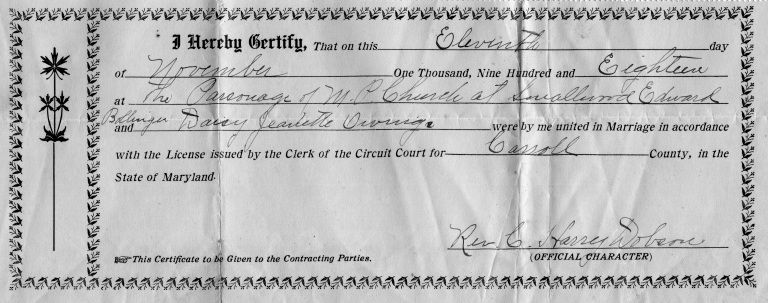 I Hereby Certify, That on this Eleventh day
of November One Thousand, Nine Hundred and Eighteen
at The Parsonage of M. P. Church at Smallwood Edward
Bollinger and Daisy Jeanette Owings were by me united in Marriage in accordance
with the License issued by the Clerk of the Circuit Court for Carroll County, in the
State of Maryland.
Rev. C. Harres Dobson
(OFFICIAL CHARACTER)
This Certificate to be Given to the Contracting Parties.